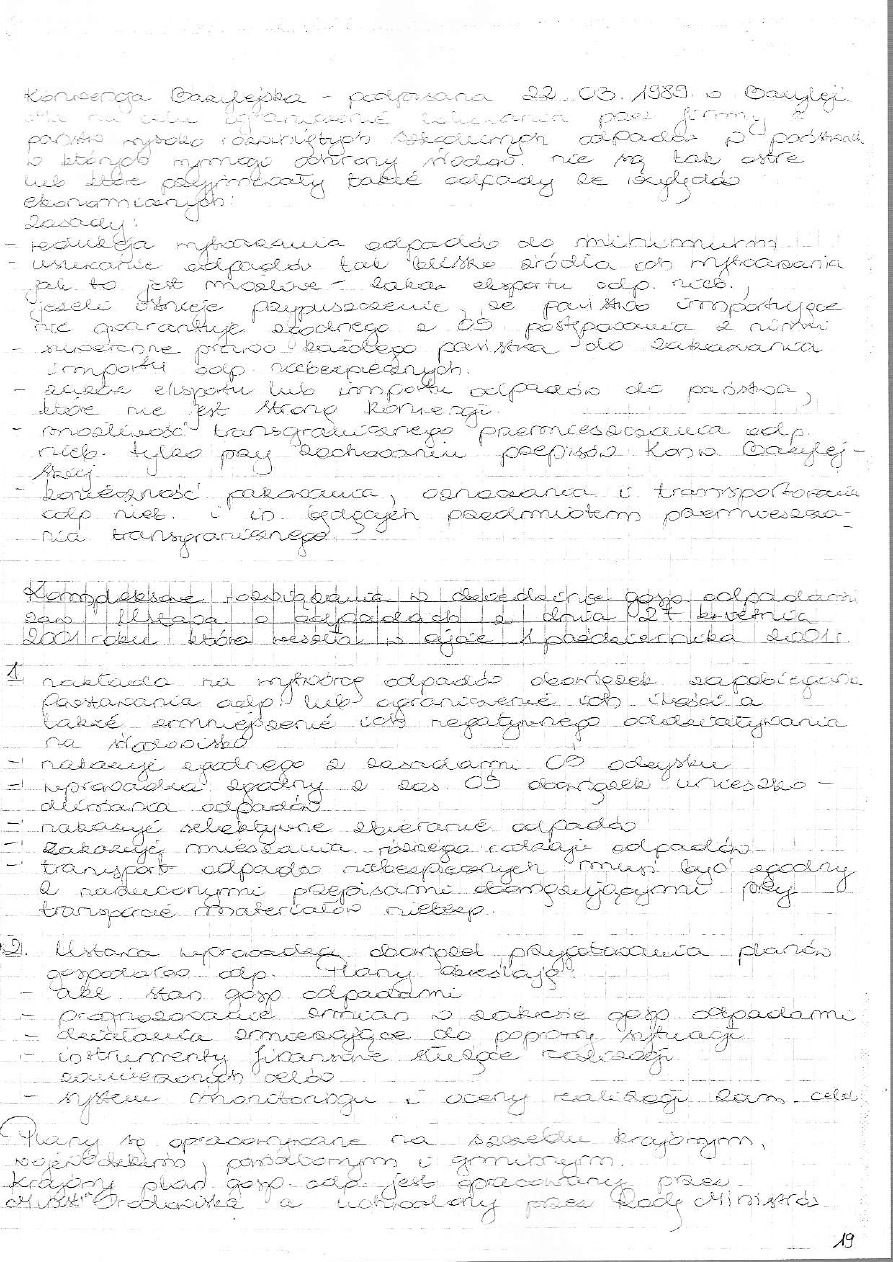 Konwencja Bazylejska - podpisana 22.03.1989 w Bazylei
Ma na celu ograniczenie lokowania przez firmy z
państw wysoko rozwiniętych szkodliwych odpadów w państwach
w których wymogi ochrony środow. nie są tak ostre
lub które przyjmowały takie odpady ze względów
ekonomicznych:
Zasady:
- redukcja wytwarzania odpadów do minimum
- usuwanie odpadów tak blisko źródła ich wytwarzania
jak to jest możliwe - zakaz eksportu odp. nieb.,
jeżeli istnieje przypuszczenie, że państwo importujące
nie gwarantuje zgodnego z OŚ postępowania z nimi
- suwerenne prawo każdego państwa do zakazania
importu odp. niebezpiecznych.
- zakaz eksportu lub importu odpadów do państwa,
które nie jest stroną konwencji.
- możliwość transgranicznego przemieszczania odp.
nieb. tylko przy zachowaniu przepisów Konw. Bazylej-
skiej
- konieczność pakowania, oznaczania i transportowania
odp. nieb. i in. będących przedmiotem przemieszcza-
nia transgranicznego.
Kompleksowe rozwiązania w dziedzinie gosp. odpadami
zaw. Ustawa o odpadach z dnia 27 kwietnia
2001 roku która weszła w życie 1 października 2001r.
1 nakłada na wytwórcę odpadów obowiązek zapobiegania
Powstawania odp. lub ograniczenie ich ilości a
także zmniejszenie ich negatywnego oddziaływania
na środowisko
- nakazuje zgodnego z zasadami OŚ odzysku
- wprowadza zgodny z zas. OŚ obowiązek unieszko-
dliwiania odpadów
- nakazuje selektywne zbieranie odpadów
- zakazuje mieszania różnego rodzaju odpadów
- transport odpadów niebezpiecznych musi być zgodny
z nadrzędnymi przepisami obowiązującymi przy
transporcie materiałów niebezp.
2. Ustawa wprowadza obowiązek przygotowania planów
gospodarow. odp. Plany określają:
- akt. stan gosp. odpadami
- prognozowanie zmian w zakresie gosp. odpadami
- działania zmierzające do poprawy sytuacji
- instrumenty finansowe służące realizacji
zamierzonych celów
- system monitoringu i oceny realizacji zam. celów
Plany są opracowywane na szczeblu krajowym,
wojewódzkim, powiatowym i gminnym.
Krajowy plan gosp. odp. jest opracowany przez
Minist. Środowiska a uchwalony przez Radę Ministrów
19